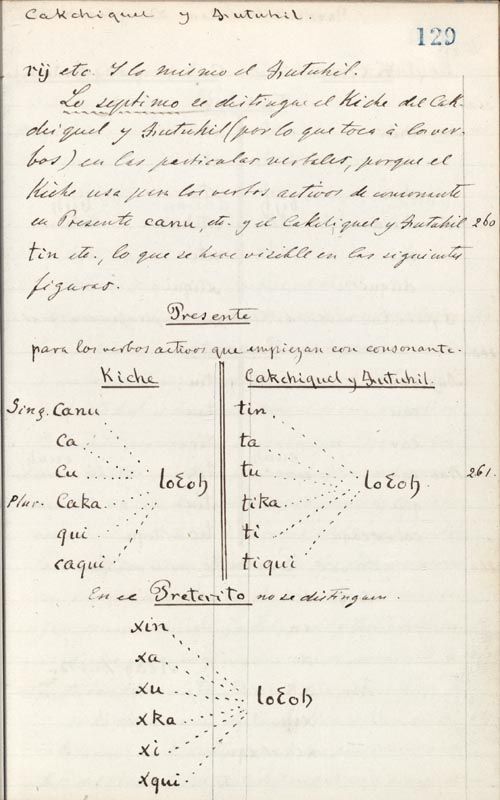 Cakchiquel y Zutuhil.
129
rij etc. Y lo mismo el Zutuhil.
Lo septimo se distingue el Kiche del Cak-
chiquel y Zutuhil (por lo que toca à los ver-
bos) en las particulas verbales, porque el
Kiche usa para los verbos activos de consonante
en Presente canu, etc. y el Cakchiquel y Zutuhil 260
tin etc., lo que se hace visible en las siguientes
figuras.
Presente
para los verbos activos que empiezan con consonante.
Kiche Cakchiquel y Zutuhil.
Sing. canu tin
ca ta
cu loƐoh tu loƐoh 261.
Plur. Caka tika
qui ti
caqui tiqui
En el Preterito no se distinguen.
xin
xa
xu loƐoh
xka
xi
xqui